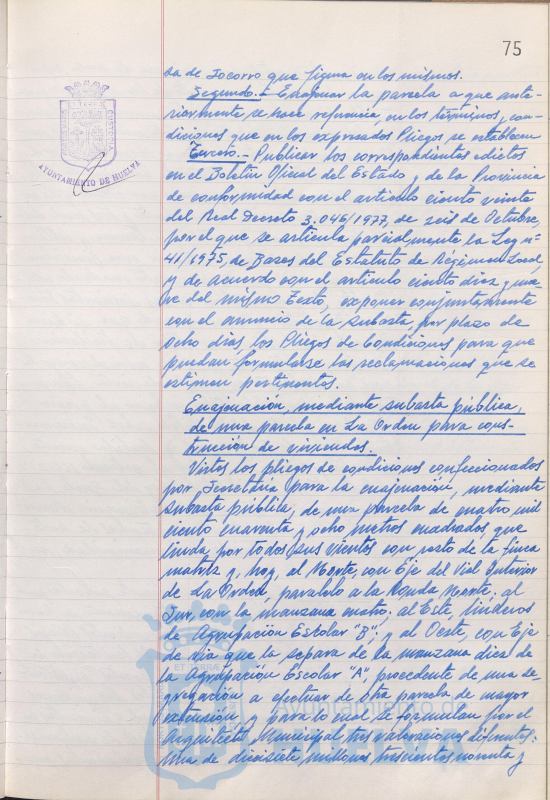 75
da de Socorro que figura en los mismos.
Segundo.- Enajenar la parcela a que ante-
riormente se hace referencia, en los términos, con-
diciones que en los expresados Pliegos se establecen
Tercero.- Publicar los correspondientes edictos
en el Boletín Oficial del Estado y de la Provincia
de conformidad con el artículo ciento veinte
del Real Decreto 3.046/1977, de seis de Octubre,
por el que se articula parcialmente la Ley nº
41/1975, de Bases del Estatuto de Régimen Local,
y de acuerdo con el artículo ciento diez y nue-
ve del mismo Texto, exponer conjuntamente
con el anuncio de la subasta, por plazo de
ocho días los Pliegos de Condiciones para que
puedan formularse las reclamaciones que se
estimen pertinentes.
Enajenación, mediante subasta pública,
de una parcela en La Orden para cons-
trucción de viviendas.
Vistos los pliegos de condiciones confeccionados
por Secretaría para la enajenación, mediante
subasta pública, de una parcela de cuatro mil
ciento cuarenta y ocho metros cuadrados, que
linda por todos sus vientos con resto de la finca
matriz y, hoy, al Norte, con Eje del Vial Interior
de La Orden, paralelo a la Ronda Norte; al
Sur, con la manzana cuatro; al Este, linderos
de Agrupación Escolar "B"; y al Oeste, con Eje
de vía que la separa de la manzana diez de
la Agrupación Escolar "A", procedente de una se-
gregación a efectuar de otra parcela de mayor
extensión, y para lo cual se formulan por el
Arquitecto Municipal tres valoraciones diferentes:
una de diecisiete millones trescientos noventa y
AYUNTAMIENTO DE HUELVA
Ayuntamiento de
HUELVA